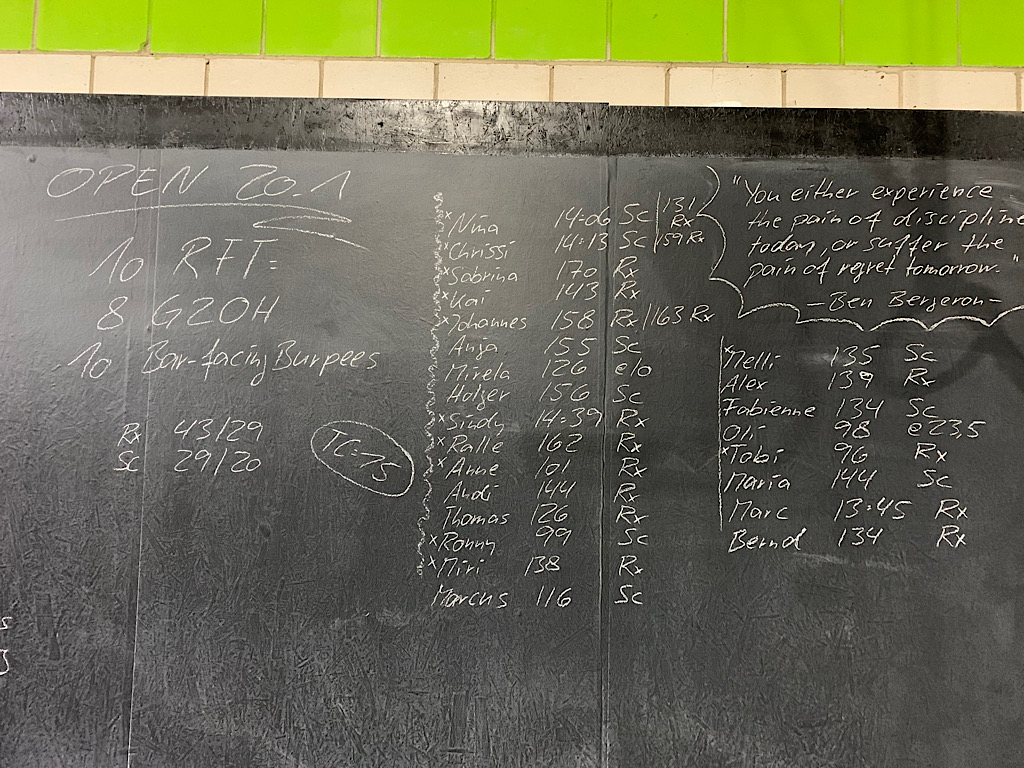 OPEN 20.1
10 RFT:
8 G2OH
10 Bar-facing Burpees
Rx 43/29
Sc 29/20
TC:15
x Nina 14:06 Sc | 131 Rx
x Chrissi 14:13 Sc | 159 Rx
x Sabrina 170 Rx
x Kai 143 Rx
x Johannes 158 Rx | 163 Rx
Anja 155 Sc
Mirela 126 e10
Holger 156 Sc
x Sindy 14:39 Rx
x Ralle 162 Rx
x Anne 101 Rx
Andi 144 Rx
Thomas 126 Rx
x Ronny 99 Sc
x Miri 138 Rx
Marcus 116 Sc
"You either experience
the pain of discipline
today, or suffer the
pain of regret tomorrow."
- Ben Bergeron -
x Melli 135 Sc
Alex 139 Rx
Fabienne 134 Sc
Oli 98 e23,5
x Tobi 96 Rx
Maria 144 Sc
Marc 13:45 Rx
Bernd 134 Rx